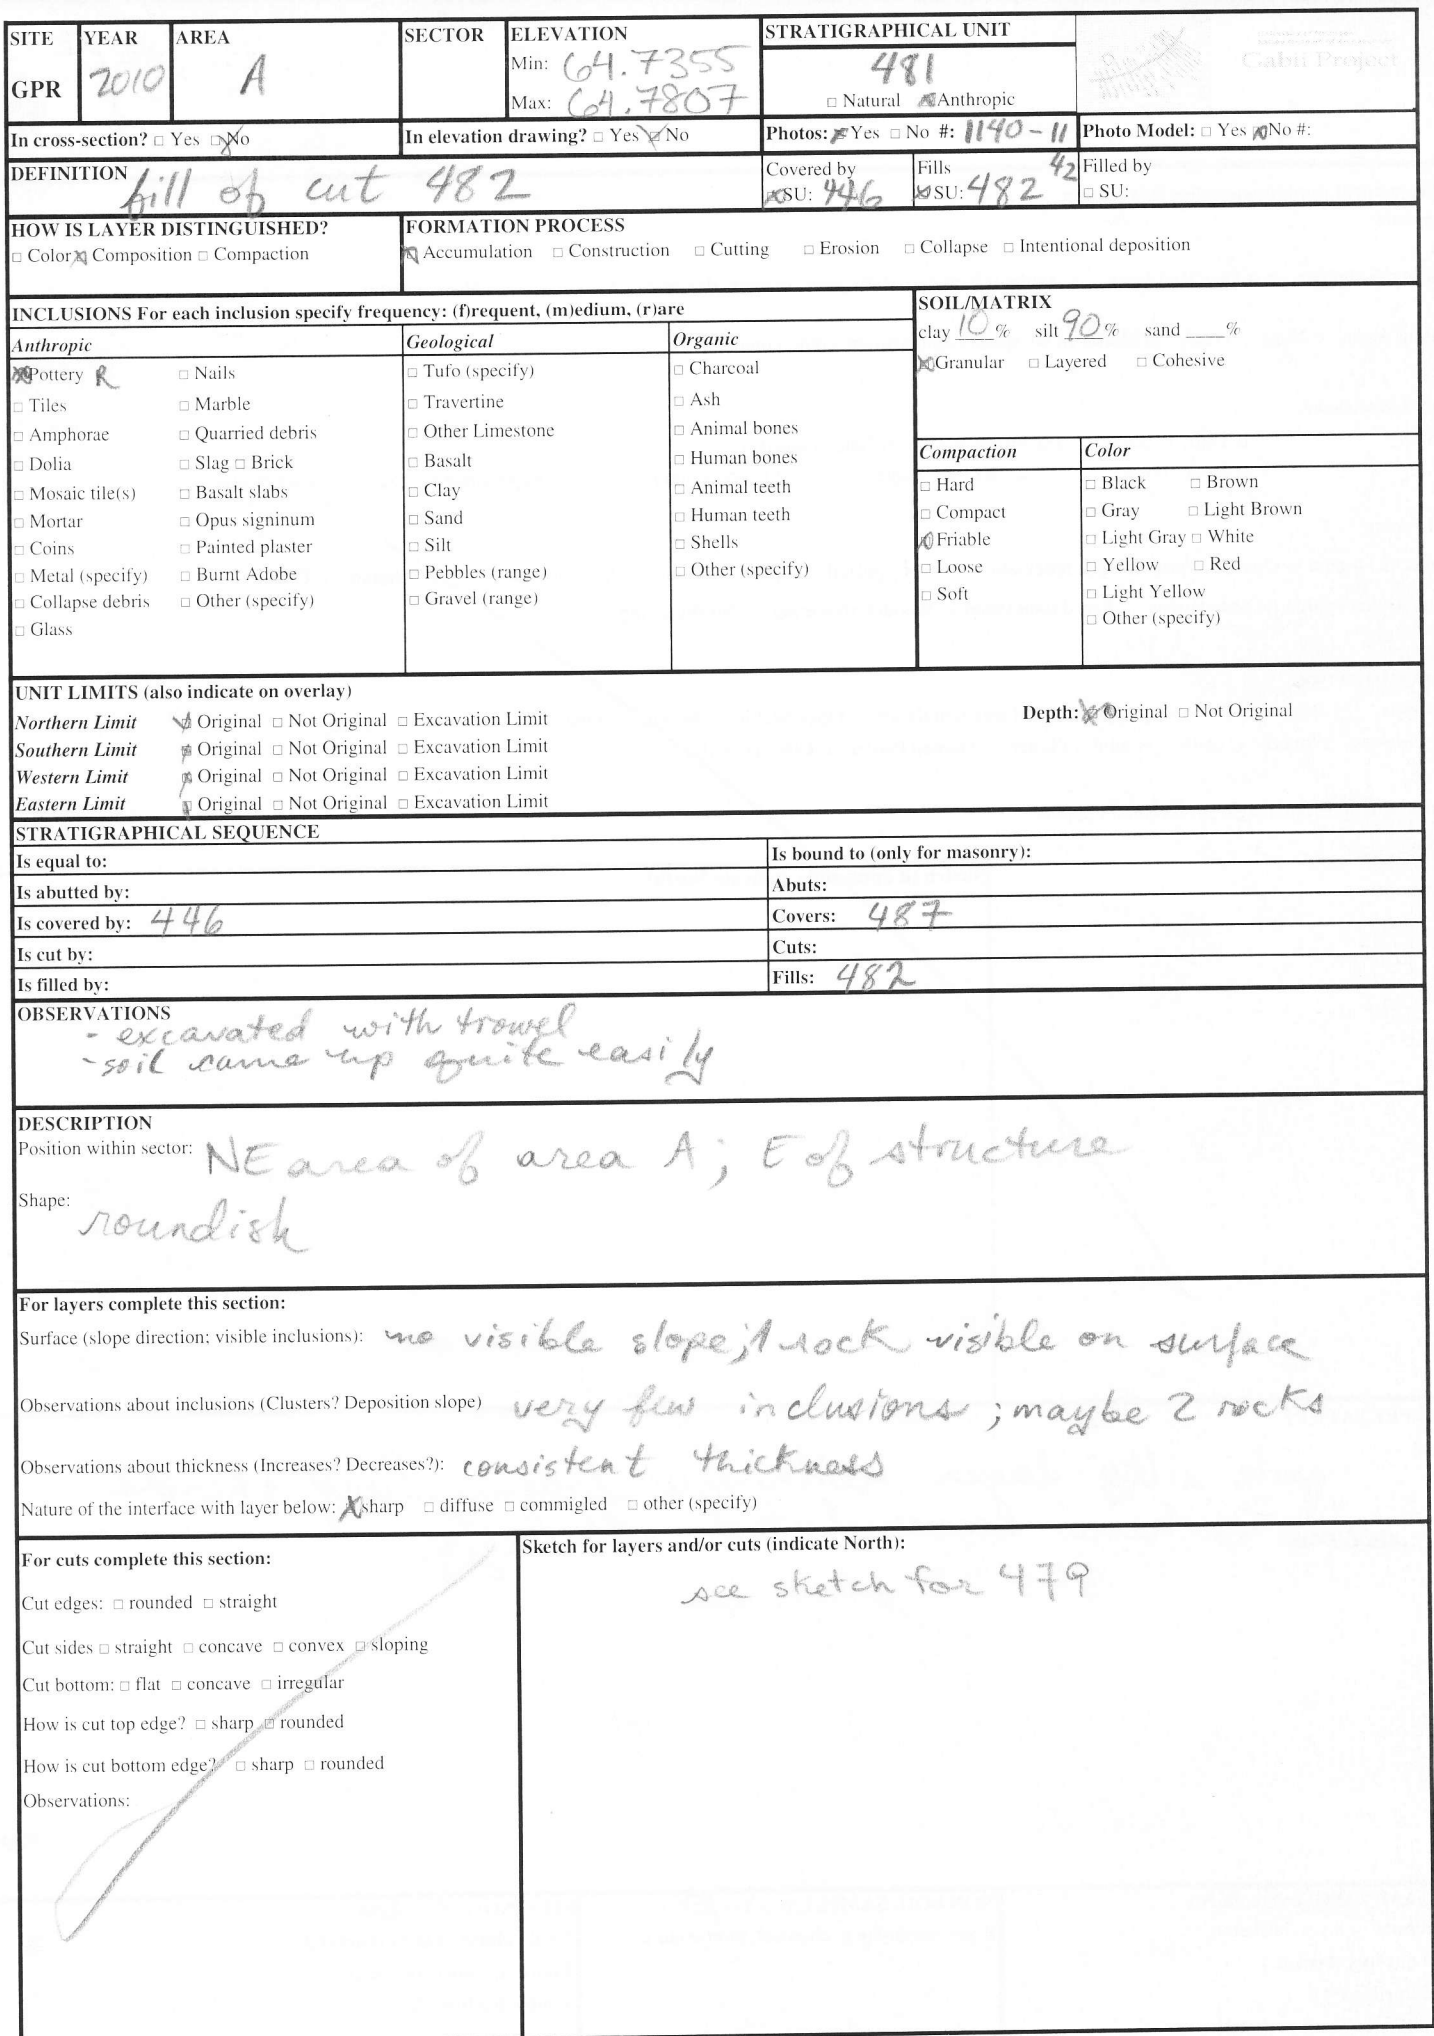 SITE YEAR AREA SECTOR ELEVATION STRATIGRAPHICAL UNIT
GPR 2010 A Min: 64.7355 481 Gabii Project
Max: 64.7807 □ Natural ☒ Anthropic
In cross-section? □ Yes ☒ No In elevation drawing? □ Yes ☒ No Photos: ☒ Yes □ No #: 1140-1142 Photo Model: □ Yes ☒ No #:
DEFINITION fill of cut 482 Covered by ☒ SU: 446 Fills ☒ SU: 482 Filled by □ SU:
HOW IS LAYER DISTINGUISHED? FORMATION PROCESS
□ Color ☒ Composition □ Compaction ☒ Accumulation □ Construction □ Cutting □ Erosion □ Collapse □ Intentional deposition
INCLUSIONS For each inclusion specify frequency: (f)requent, (m)edium, (r)are
Anthropic
☒ Pottery R □ Nails
□ Tiles □ Marble
□ Amphorae □ Quarried debris
□ Dolia □ Slag □ Brick
□ Mosaic tile(s) □ Basalt slabs
□ Mortar □ Opus signinum
□ Coins □ Painted plaster
□ Metal (specify) □ Burnt Adobe
□ Collapse debris □ Other (specify)
□ Glass
Geological
□ Tufo (specify)
□ Travertine
□ Other Limestone
□ Basalt
□ Clay
□ Sand
□ Silt
□ Pebbles (range)
□ Gravel (range)
Organic
□ Charcoal
□ Ash
□ Animal bones
□ Human bones
□ Animal teeth
□ Human teeth
□ Shells
□ Other (specify)
SOIL/MATRIX
clay 10 % silt 90 % sand ____%
☒ Granular □ Layered □ Cohesive
Compaction
□ Hard
□ Compact
☒ Friable
□ Loose
□ Soft
Color
□ Black □ Brown
□ Gray □ Light Brown
□ Light Gray □ White
□ Yellow □ Red
□ Light Yellow
□ Other (specify)
UNIT LIMITS (also indicate on overlay)
Northern Limit ☒ Original □ Not Original □ Excavation Limit Depth: ☒ Original □ Not Original
Southern Limit ☒ Original □ Not Original □ Excavation Limit
Western Limit ☒ Original □ Not Original □ Excavation Limit
Eastern Limit ☒ Original □ Not Original □ Excavation Limit
STRATIGRAPHICAL SEQUENCE
Is equal to: Is bound to (only for masonry):
Is abutted by: Abuts:
Is covered by: 446 Covers: 487
Is cut by: Cuts:
Is filled by: Fills: 482
OBSERVATIONS
- excavated with trowel
- soil came up quite easily
DESCRIPTION
Position within sector: NE area of area A; E of structure
Shape:
roundish
For layers complete this section:
Surface (slope direction; visible inclusions): no visible slope; 1 rock visible on surface
Observations about inclusions (Clusters? Deposition slope) very few inclusions; maybe 2 rocks
Observations about thickness (Increases? Decreases?): consistent thickness
Nature of the interface with layer below: ☒ sharp □ diffuse □ commigled □ other (specify)
For cuts complete this section:
Cut edges: □ rounded □ straight
Cut sides □ straight □ concave □ convex □ sloping
Cut bottom: □ flat □ concave □ irregular
How is cut top edge? □ sharp □ rounded
How is cut bottom edge? □ sharp □ rounded
Observations:
Sketch for layers and/or cuts (indicate North):
see sketch for 479